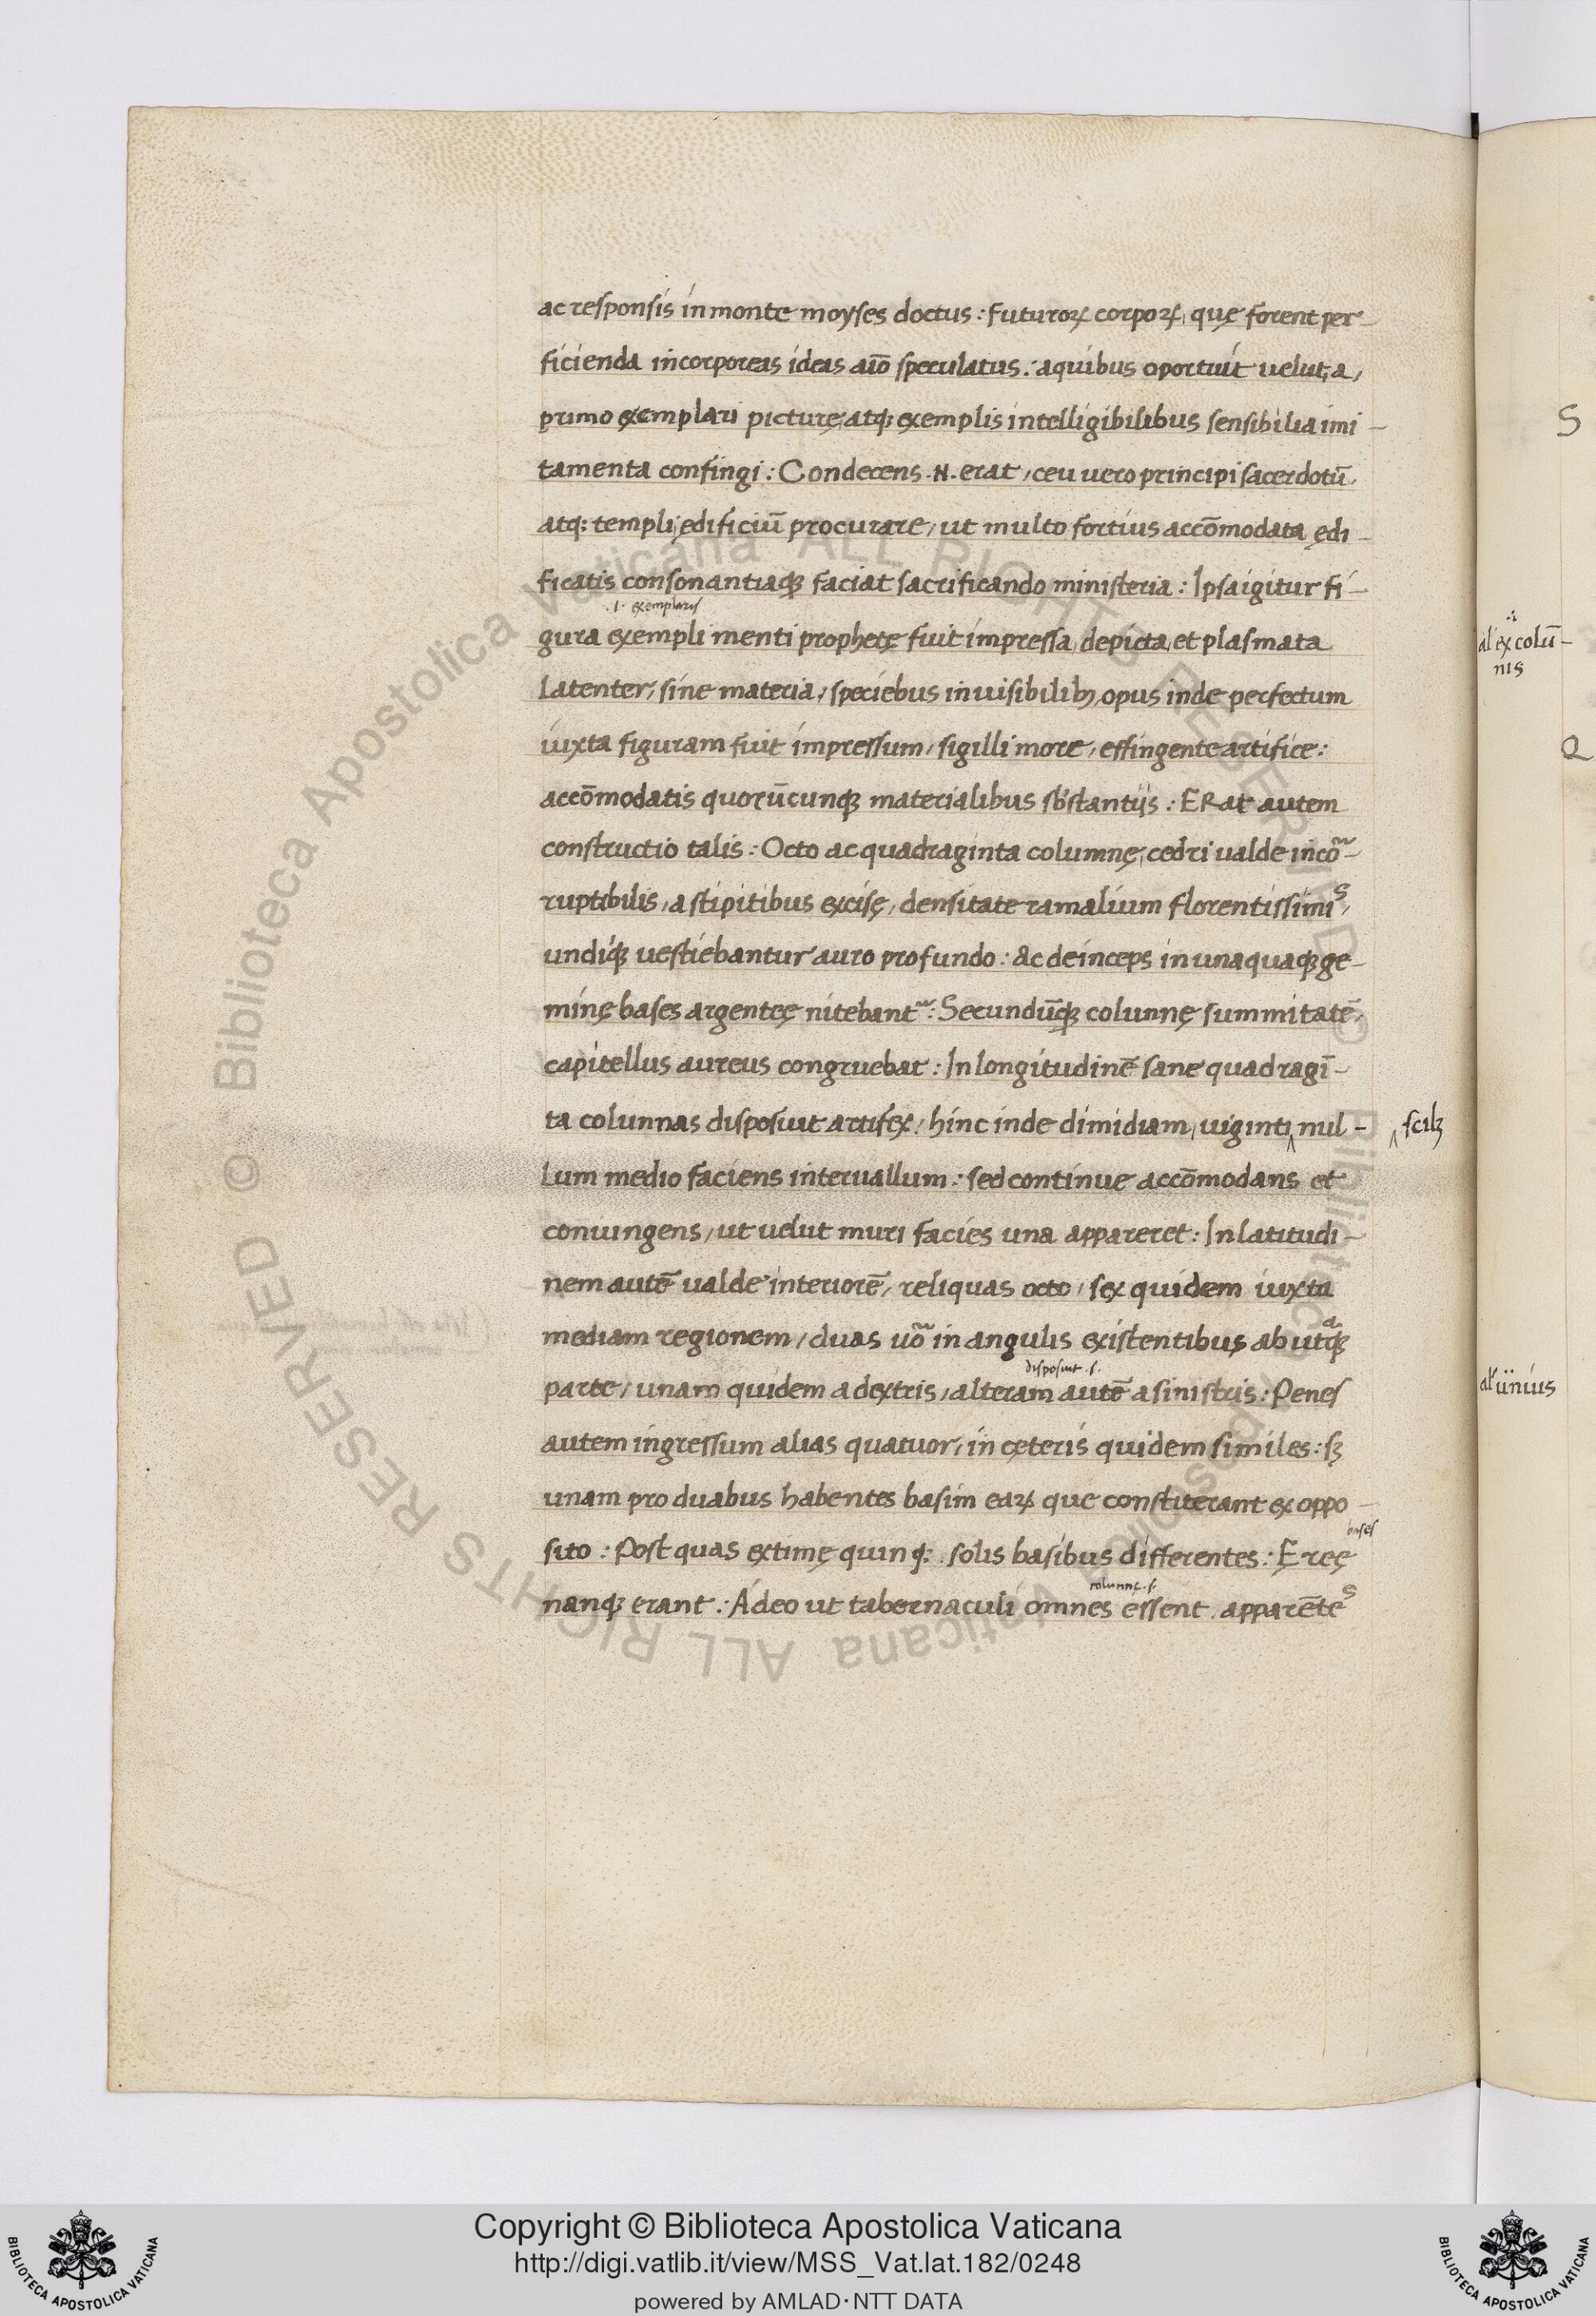 ac responsis in monte moyses doctus : futuroꝝ corpoꝝ, quę forent per-
ficienda incorporeas ideas aīo speculatus : a quibus oportuit velut, a,
primo exemplari picturę, atq; exemplis intelligibilibus sensibilia imi-
tamenta confingi : Condecens .N. erat, ceu vero principi sacerdotū,
atq; templi, ędificiū procurare, ut multo fortius accōmodata ędi-
ficatis consonantiaqꝫ faciat sacrificando ministeria : Ipsa igitur fi-
.i. exemplaris
gura exempli menti prophetę fuit impressa, depicta, et plasmata
latenter, sine materia, speciebus invisibilibꝫ, opus inde perfectum
iuxta figuram fuit impressum, sigilli more, effingente artifice :
accōmodatis quorūcunqꝫ materialibus sb̄stantijs : ERat autem
constructio talis : Octo ac quadraginta columnę, cedri valde incō-
ruptibilis, a stipitibus excisę, densitate ramalium florentissimis,
undiqꝫ vestiebantur auro profundo : Ac deinceps in unaquaqꝫ ge-
minę bases argenteę nitebant̃ : Secundūqꝫ colunnę summitatē,
capitellus aureus congruebat : In longitudinē sane quadragī-
ta colunnas disposuit artifex, hinc inde dimidiam, viginti nul-
scilꝫ
lum medio faciens intervallum : sed continue accōmodans et
coniungens, ut velut muri facies una appareret : In latitudi-
nem autē valde interiorē, reliquas octo, sex quidem iuxta
mediam regionem, duas ṽo in angulis existentibus ab utͣqꝫ
disposuit .s.
parte, unam quidem a dextris, alteram autē a sinistris : Penes
autem ingressum alias quatuor, in cęteris quidem similes : sꝫ
unam pro duabus habentes basim eaꝝ que constiterant ex oppo-
bases
sito : Post quas extimę quinq; . solis basibus differentes : Ereę
colunnę .s.
nanqꝫ erant : Adeo ut tabernaculi omnes essent apparētes
S
al' ex colū-
nis
Q
al' unius
Copyright © Biblioteca Apostolica Vaticana
http://digi.vatlib.it/view/MSS_Vat.lat.182/0248
powered by AMLAD·NTT DATA
BIBLIOTECA APOSTOLICA VATICANA
BIBLIOTECA APOSTOLICA VATICANA
© Biblioteca Apostolica Vaticana ALL RIGHTS RESERVED
© Biblioteca Apostolica Vaticana ALL RIGHTS RESERVED